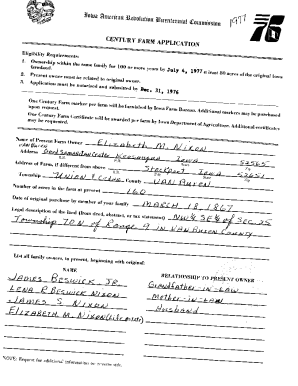 Iowa American Revolution Bicentennial Commission
1977
76
CENTURY FARM APPLICATION
Eligibility Requirements:
1. Ownership within the same family for 100 or more years by July 4, 1977 at least 80 acres of the original farm
homestead.
2. Present owner must be related to original owner.
3. Application must be notarized and submitted by Dec. 31, 1976
One Century Farm marker per farm will be furnished by Iowa Farm Bureau. Additional markers may be purchased
upon request.
One Century Farm Certificate will be awarded per farm by Iowa Department of Agriculture. Additional certificates
may be requested.
Name of Present Farm Owner Elizabeth M. Nixon
Address Good Samaritan Center Keosauqua Iowa 52565
Address of Farm, if different from above Stockport Iowa 52651
Township Union County VAN BUREN
Number of acres in the farm at present 160
Date of original purchase by member of your family MARCH 18, 1867
Legal description of the land (from deed, abstract, or tax statement) NW ¼ SE ¼ of Sec. 25
Township 70 N of Range 9 IN VAN BUREN County
List all family owners, to present, beginning with original:
NAME RELATIONSHIP TO PRESENT OWNER
JAMES BESWICK, JR. Grandfather-in-Law
LENA R. BESWICK NIXON Mother-in-Law
JAMES S. NIXON Husband
ELIZABETH M. NIXON
NOTE: Request for additional information on reverse side.